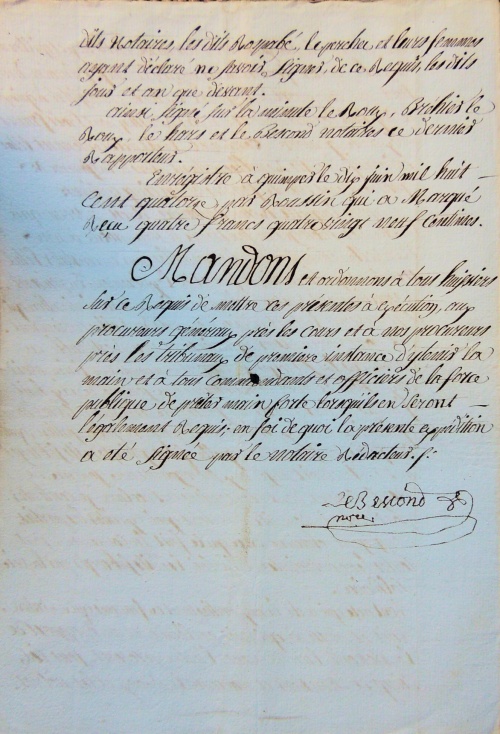 dits Notaires, les dits Rospabé, le perchec et leurs femmes
ayant déclaré ne savoir signer, de ce Requis, les dits
jour et an que devant.
ainsi signé sur la minute le Roux, Bréhier le
Roux, le hars et le Bescond notaires ce dernier
Rapporteur.
Enregistré à quimper le dix juin mil huit
cent quatorze par Roussin qui a Marqué
Reçu quatre francs quatre vingt neuf Centimes.
Mandons et ordonnons à tous huissiers
sur ce Requis de mettre ces présentes à exécution, aux
procureurs généraux près les cours et à nos procureurs
près les tribunaux de première instance d'y tenir la
main et à tous commandants et officiers de la force
publique de prêter main forte lorsqu'ils en seront
légalement Requis; en foi de quoi la présente expédition
a été signée par le notaire Rédacteur. /.
Le Bescond
nore